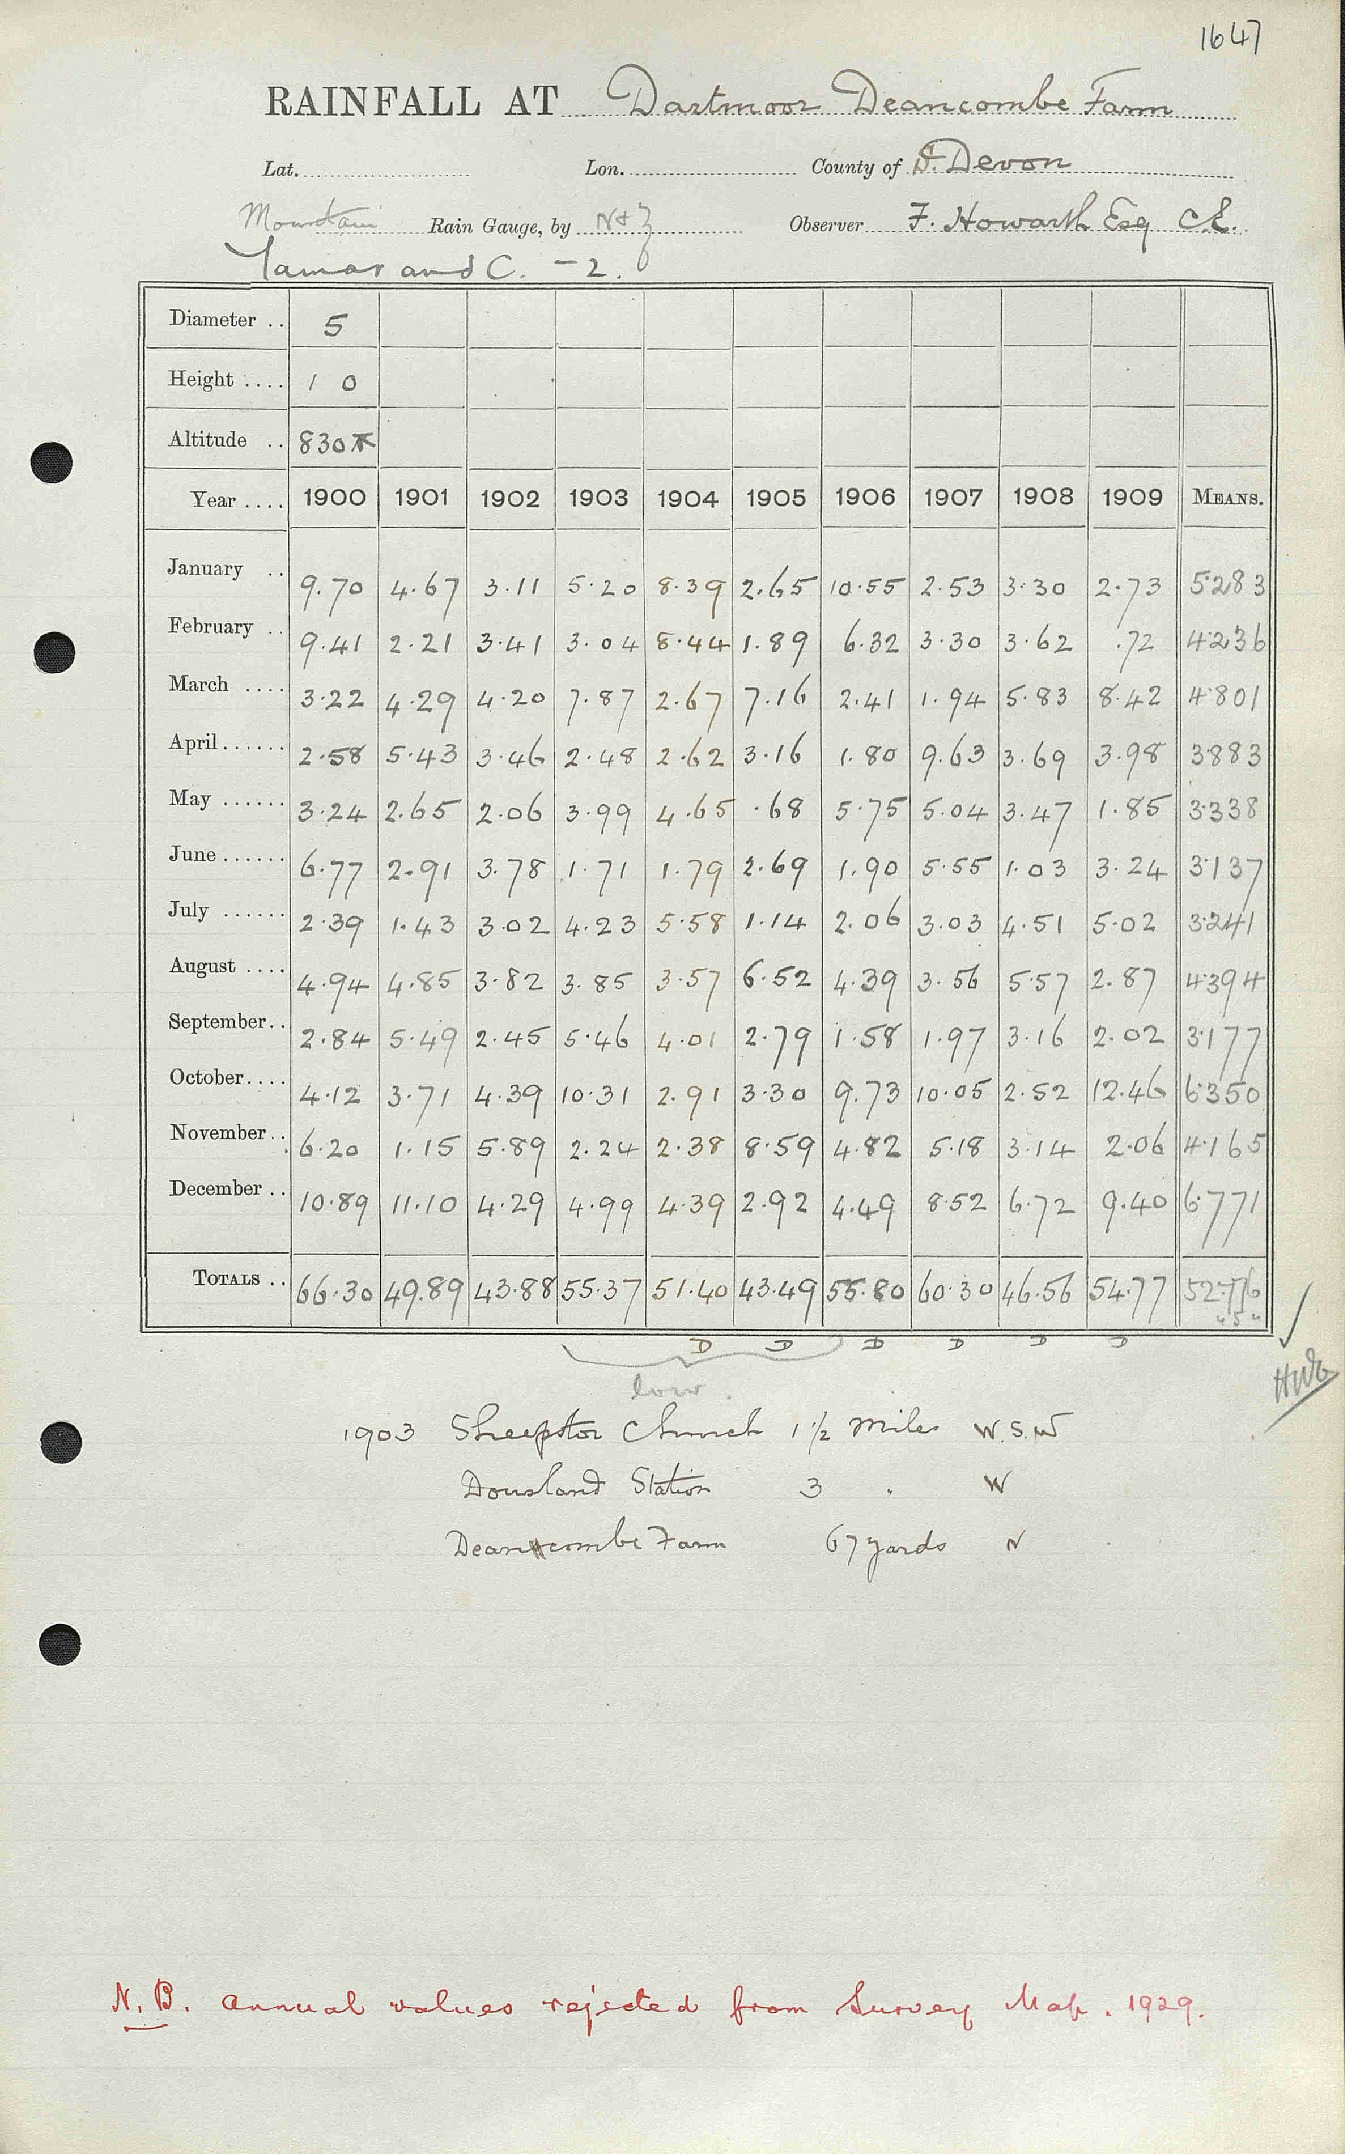 1647
RAINFALL AT Dartmoor Deancombe Farm
Lat. Lon. County of S. Devon
Mountain Rain Gauge, by N & Z Observer F. Howarth Esq C.E.
Tamar and C. - 2.
Diameter .. 5
Height .... 1 0
Altitude .. 830
Year .... 1900 1901 1902 1903 1904 1905 1906 1907 1908 1909 MEANS.
January .. 9.70 4.67 3.11 5.20 8.39 2.65 10.55 2.53 3.30 2.73 5.283
February .. 9.41 2.21 3.41 3.04 8.44 1.89 6.32 3.30 3.62 .72 4.236
March .... 3.22 4.29 4.20 7.87 2.67 7.16 2.41 1.94 5.83 8.42 4.801
April...... 2.58 5.43 3.46 2.48 2.62 3.16 1.80 9.63 3.69 3.98 3.883
May ...... 3.24 2.65 2.06 3.99 4.65 .68 5.75 5.04 3.47 1.85 3.338
June...... 6.77 2.91 3.78 1.71 1.79 2.69 1.90 5.55 1.03 3.24 3.137
July ...... 2.39 1.43 3.02 4.23 5.58 1.14 2.06 3.03 4.51 5.02 3.241
August .... 4.94 4.85 3.82 3.85 3.57 6.52 4.39 3.56 5.57 2.87 4.394
September.. 2.84 5.49 2.45 5.46 4.01 2.79 1.58 1.97 3.16 2.02 3.177
October.... 4.12 3.71 4.39 10.31 2.91 3.30 9.73 10.05 2.52 12.46 6.350
November.. 6.20 1.15 5.89 2.24 2.38 8.59 4.82 5.18 3.14 2.06 4.165
December .. 10.89 11.10 4.29 4.99 4.39 2.92 4.49 8.52 6.72 9.40 6.771
TOTALS .. 66.30 49.89 43.88 55.37 51.40 43.49 55.80 60.30 46.56 54.77 52.776
D D D D D D
low.
1903 Sheepstor Church 1 1/2 miles W.S.W
Dousland Station 3 . W
Deancombe Farm 67 yards N
N.B. Annual values rejected from Survey Map. 1929.